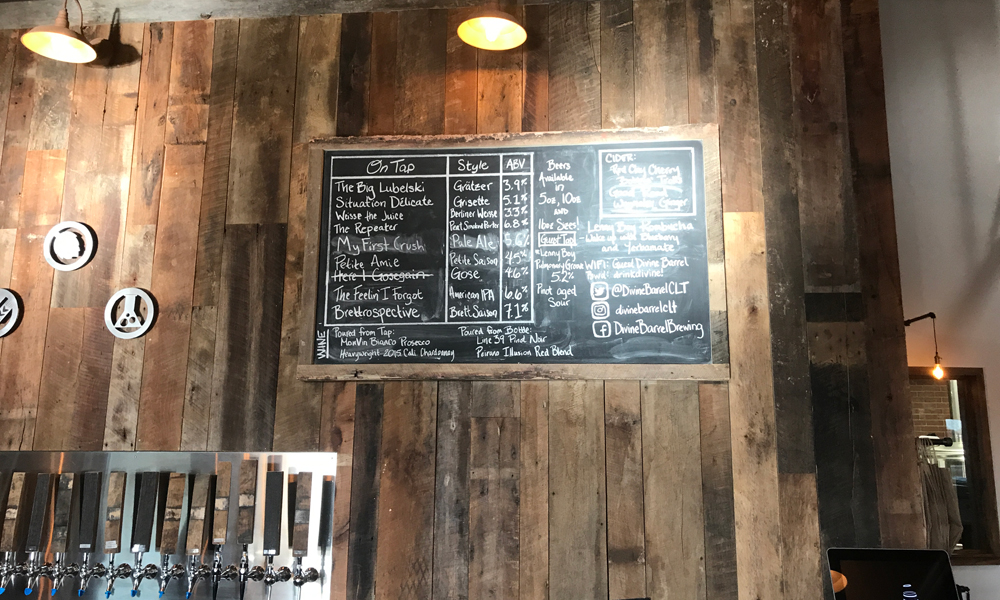 On Tap Style ABV
The Big Lubelski Grätzer 3.9%
Situation Délicate Grisette 5.1%
Weisse the Juice Berliner Weisse 3.3%
The Repeater Peat Smoked Porter 6.8%
My First Crush Pale Ale 5.6%
Petite Amie Petite Saison 4.5%
Here I Gosegain Gose 4.6%
The Feelin' I Forgot American IPA 6.6%
Brettrospective Brett Saison 7.1%
Beers
Available
in
5oz, 10oz
AND
Guest Tap!
*Lenny Boy
5.2%
aged
Sour
CIDER:
Red Clay Cherry
Ginger
Lenny Boy Kombucha
- Wake up with Blueberry
and Yerbamate
WIFI: Guest Divine Barrel
Pswd: drinkdivine!
@DivineBarrelCLT
divinebarrelclt
DivineBarrelBrewing
WINE
Poured from Tap:
MonVin Bianco Prosecco
Heavyweight 2015 Cali Chardonnay
Poured from Bottle:
Line 39 Pinot Noir
Peirano Illusion Red Blend